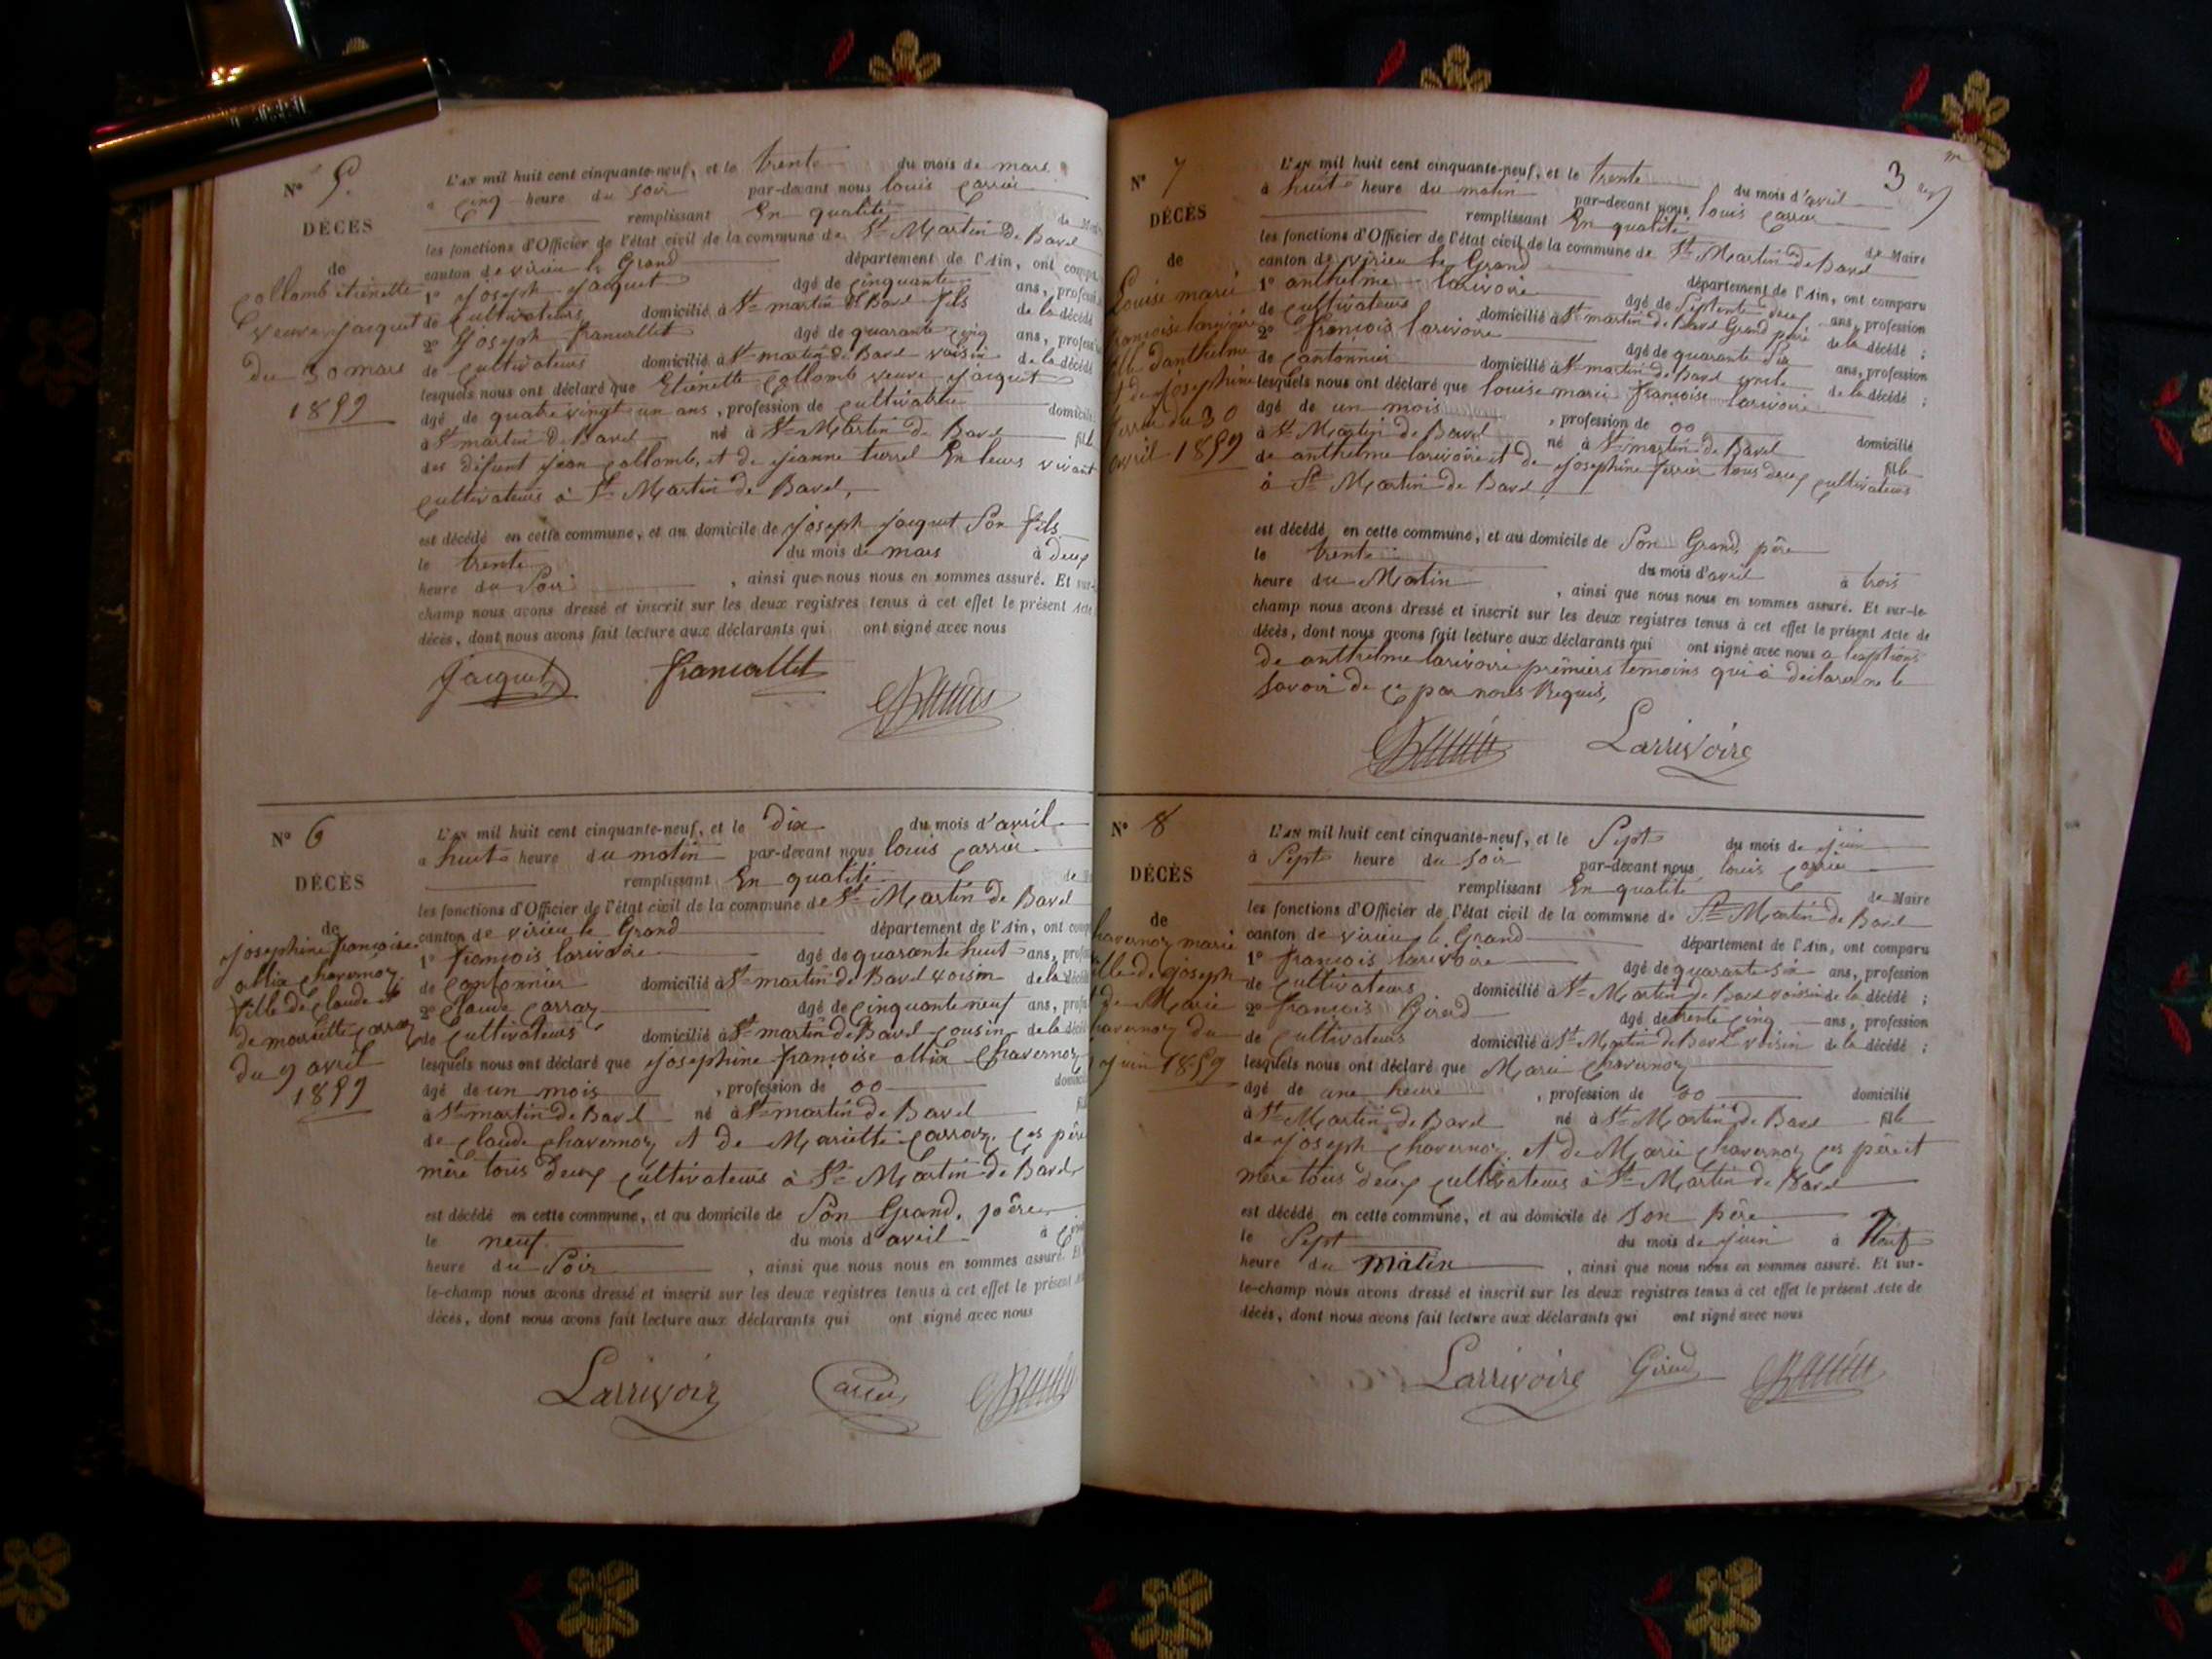 N° 5.
DÉCÈS
de
Collomb etienette
veuve jacquet
du 30 mars
1859
L'AN mil huit cent cinquante-neuf, et le trente du mois de mars
à cinq heure du soir par-devant nous louis Carrier
remplissant En qualité de
les fonctions d'Officier de l'état civil de la commune de St Martin de Bavel
canton de virieu le Grand département de l'Ain, ont
1° joseph jacquet âgé de cinquante ans,
de cultivateurs domicilié à St martin de Bavel fils de la décédé
2° joseph francallet âgé de quarante cinq ans,
de cultivateurs domicilié à St martin de Bavel voisin de la décédé
lesquels nous ont déclaré que Etienette Collomb veuve jacquet
âgé de quatrevingt un ans, profession de domicilié
à St martin de Bavel né à St Martin de Bavel fille
des défunt jean collomb, et de jeanne turrel En leurs vivant
cultivateurs à St Martin de Bavel,
est décédé en cette commune, et au domicile de joseph jacquet Son fils
le trente du mois de mars à deux
heure du Soir , ainsi que nous nous en sommes assuré. Et sur-le-
champ nous avons dressé et inscrit sur les deux registres tenus à cet effet le présent Acte
décès, dont nous avons fait lecture aux déclarants qui ont signé avec nous
Jacquet francallet
N° 6
DÉCÈS
de
josephine françoise
alix chavernoz
fille de Claude et
de mariette carraz
du 9 avril
1859
L'AN mil huit cent cinquante-neuf, et le Dix du mois d'avril
à huit heure du matin par-devant nous louis Carrier
remplissant En qualité de
les fonctions d'Officier de l'état civil de la commune de St Martin de Bavel
canton de virieu le Grand département de l'Ain, ont
1° françois larivoire âgé de quarante huit ans,
de Cantonnier domicilié à St martin de Bavel voisin de la
2° Claude Carraz âgé de cinquante neuf ans,
de cultivateurs domicilié à St martin de Bavel cousin de la
lesquels nous ont déclaré que josephine françoise alix Chavernoz
âgé de un mois , profession de 00
à St martin de Bavel né à St martin de Bavel
de Claude Chavernoz et de Mariette Carraz, ces père
mère tous deux cultivateurs à St Martin de Bavel,
est décédé en cette commune, et au domicile de Son Grand père
le neuf du mois d'avril à
heure du Soir , ainsi que nous nous en sommes assuré. Et
le-champ nous avons dressé et inscrit sur les deux registres tenus à cet effet le présent
décès, dont nous avons fait lecture aux déclarants qui ont signé avec nous
Larrivoire
3
N° 7
DÉCÈS
de
Louise marie
françoise larivoire
fille d'anthelme
et de josephine
ferrier du 30
avril 1859
L'AN mil huit cent cinquante-neuf, et le trente du mois d'avril
à huit heure du matin par-devant nous louis Carrier
remplissant En qualité de Maire
les fonctions d'Officier de l'état civil de la commune de St Martin de Bavel
canton de virieu le Grand département de l'Ain, ont comparu
1° anthelme larivoire âgé de Septente deux ans, profession
de cultivateurs domicilié à St martin de Bavel Grand père de la décédé ;
2° françois larivoire âgé de quarante Six ans, profession
de Cantonnier domicilié à St martin de Bavel oncle de la décédé ;
lesquels nous ont déclaré que louise marie françoise larivoire
âgé de un mois , profession de 00 domicilié
à St Martin de Bavel né à St martin de Bavel fille
de anthelme larivoire et de josephine ferrier tous deux cultivateurs
à St Martin de Bavel,
est décédé en cette commune, et au domicile de Son Grand père
le trente du mois d'avril à trois
heure du Matin , ainsi que nous nous en sommes assuré. Et sur-le-
champ nous avons dressé et inscrit sur les deux registres tenus à cet effet le présent Acte de
décès, dont nous avons fait lecture aux déclarants qui ont signé avec nous a leaptions
de anthelme larivoire prémiers temoins qui à déclarer ne le
savoir de ce par nous Requis,
Larrivoire
N° 8
DÉCÈS
de
chavernoz marie
fille de joseph
et de Marie
chavernoz du
juin 1859
L'AN mil huit cent cinquante-neuf, et le Sept du mois de juin
à Sept heure du soir par-devant nous louis Carrier
remplissant En qualité de Maire
les fonctions d'Officier de l'état civil de la commune de St Martin de Bavel
canton de virieu le Grand département de l'Ain, ont comparu
1° françois larivoire âgé de quarante six ans, profession
de cultivateurs domicilié à St Martin de Bavel voisin de la décédé ;
2° françois Girod âgé de trente cinq ans, profession
de cultivateurs domicilié à St Martin de Bavel voisin de la décédé ;
lesquels nous ont déclaré que Marie Chavernoz
âgé de une heure , profession de 00 domicilié
à St Martin de Bavel né à St Martin de Bavel fille
de joseph Chavernoz et de Marie Chavernoz ces père et
mère tous deux cultivateurs à St Martin de Bavel
est décédé en cette commune, et au domicile de son père
le Sept du mois de juin à Neuf
heure du matin , ainsi que nous nous en sommes assuré. Et sur-
le-champ nous avons dressé et inscrit sur les deux registres tenus à cet effet le présent Acte de
décès, dont nous avons fait lecture aux déclarants qui ont signé avec nous
Larrivoire Girod